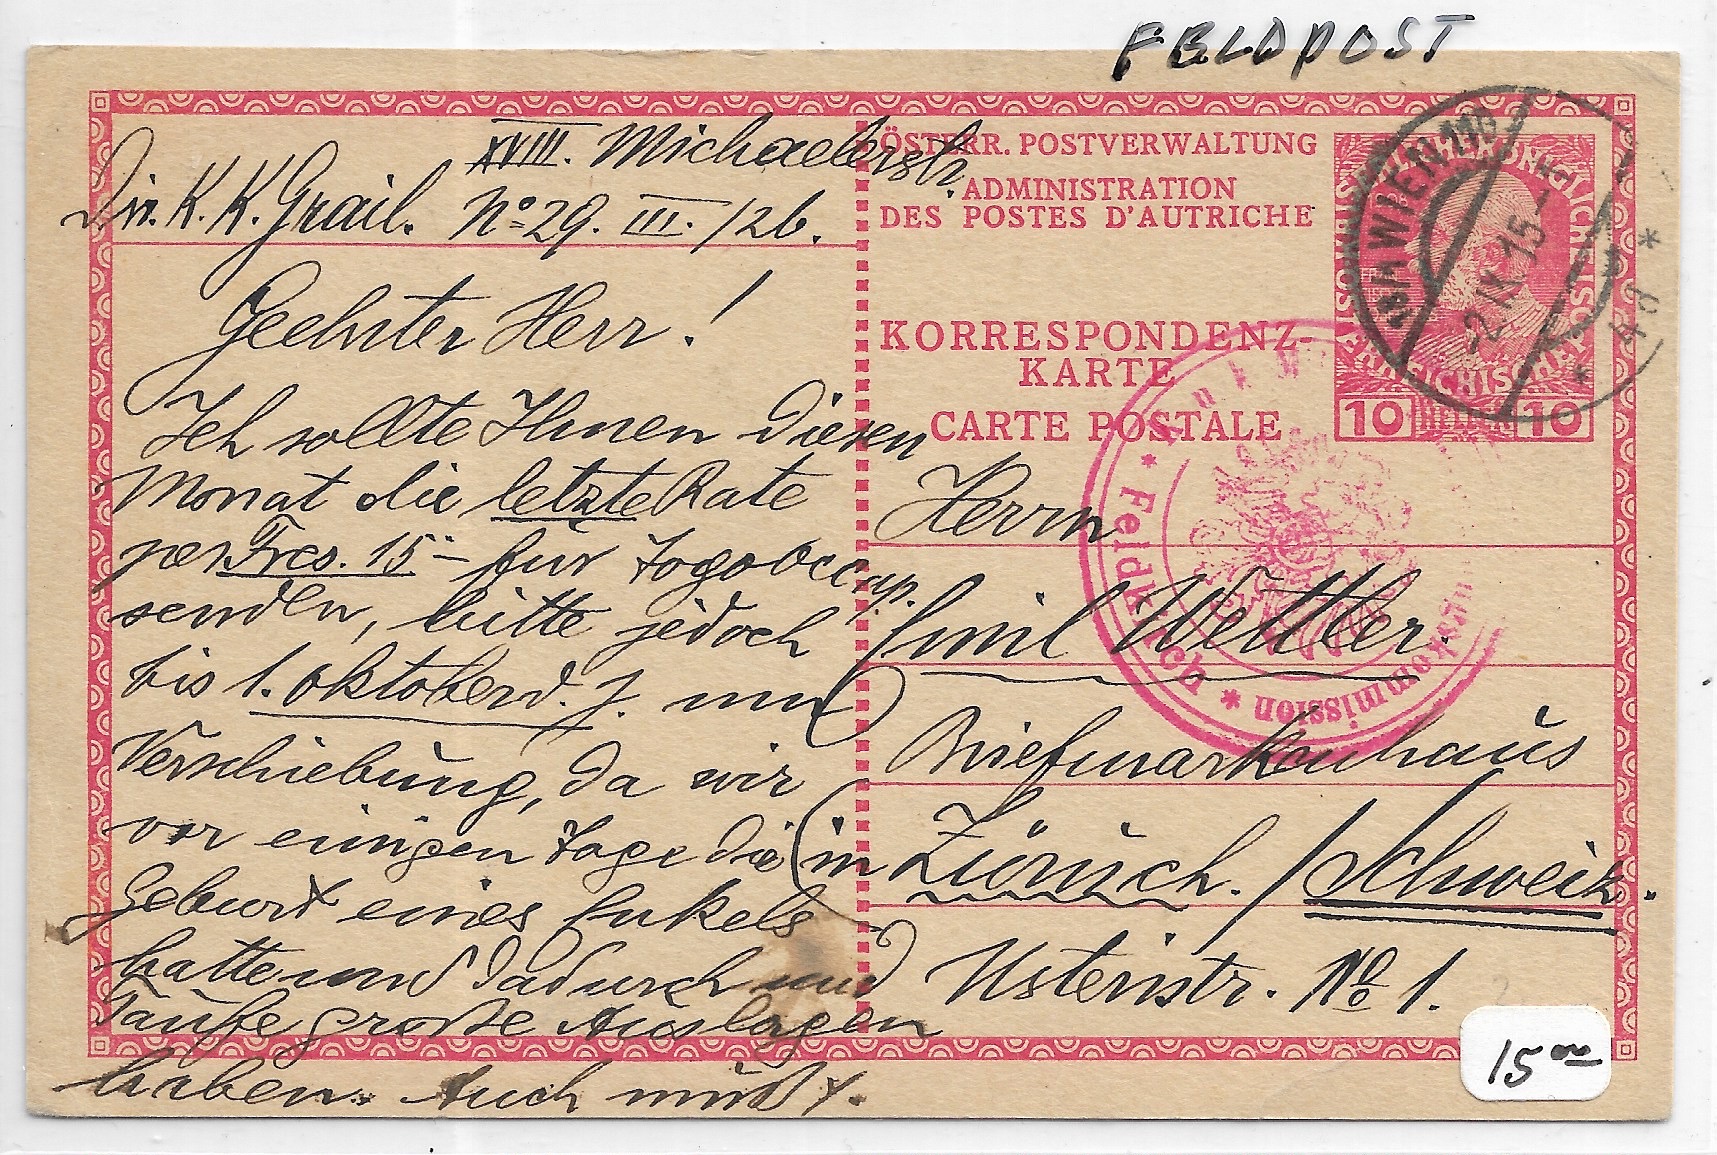 FELDPOST
XVIII. Michaelerstr.
Dir. K. K. Grail. No 29. III. /26.
Geehrter Herr!
Ich sollte Ihnen diesen
Monat die letzte Rate
per Frcs. 15.- für Togo Occup.
senden, bitte jedoch
bis 1. Oktober d. J. um
Verschiebung, da wir
vor einigen Tage die
Geburt eines Enkels
hatten und dadurch und
Taufe große Auslagen
haben. Auch mußt
ÖSTERR. POSTVERWALTUNG
ADMINISTRATION
DES POSTES D'AUTRICHE
KORRESPONDENZ-
KARTE
CARTE POSTALE
10 HELLER 10
WIEN 110
2 IX 15
* Feldkirch *
Herrn
Emil Wettler.
Briefmarkenhaus
in Zürich. / Schweiz.
Usteristr. No 1.
15 00